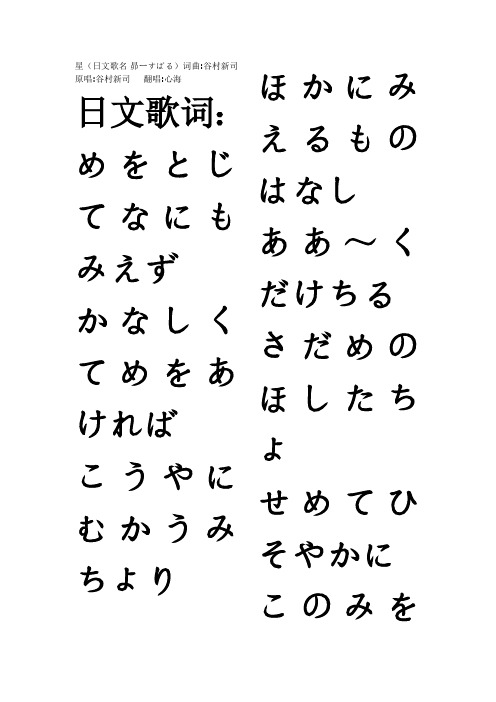 星（日文歌名 昴ーすばる）词曲:谷村新司
原唱:谷村新司 翻唱:心海
日文歌词：
めをとじ
てなにも
みえず
かなしく
てめをあ
ければ
こうやに
むかうみ
ちより
ほかにみ
えるもの
はなし
ああ～く
だけちる
さだめの
ほしたち
ょ
せめてひ
そやかに
このみを